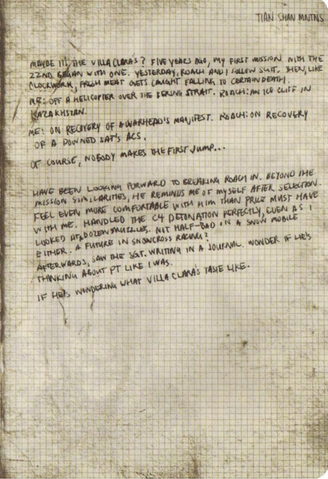 TIAN SHAN MNTNS
MAYBE IT'S THE VILLA CLARAS? FIVE YEARS AGO, MY FIRST MISSION WITH THE
22ND BEGAN WITH ONE. YESTERDAY, ROACH AND I FOLLOW SUIT. THEN, LIKE
CLOCKWORK, FRESH MEAT GETS CAUGHT FALLING TO CERTAIN DEATH.
ME: OFF A HELICOPTER OVER THE BERING STRAIT. ROACH: AN ICE CLIFF IN
KAZAKHSTAN.
ME: ON RECOVERY OF A WARHEAD'S MANIFEST. ROACH: ON RECOVERY
OF A DOWNED SAT'S ACS.
OF COURSE, NOBODY MAKES THE FIRST JUMP...
HAVE BEEN LOOKING FORWARD TO BREAKING ROACH IN. BEYOND THE
MISSION SIMILARITIES, HE REMINDS ME OF MYSELF AFTER SELECTION.
FEEL EVEN MORE COMFORTABLE WITH HIM THAN PRICE MUST HAVE
WITH ME. HANDLED THE C4 DETONATION PERFECTLY, EVEN AS I
LOOKED AT A DOZEN MUZZLES. NOT HALF-BAD ON A SNOW MOBILE
EITHER. A FUTURE IN SNOWCROSS RACING?
AFTERWARDS, SAW THE SGT. WRITING IN A JOURNAL. WONDER IF HE'S
THINKING ABOUT PT LIKE I WAS.
IF HE'S WONDERING WHAT VILLA CLARA'S TASTE LIKE.